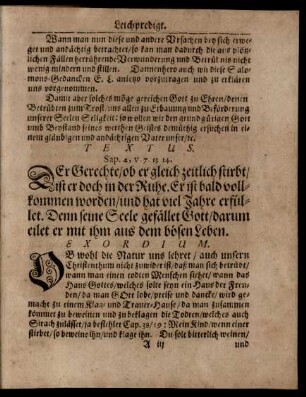 Leichpredigt.
Wann man nun diese und andere Ursachen bey sich erwe-
get und andächtig betrachtet/so kan man dadurch die aus
Fällen herrührende Verwunderung und Betrübnis nicht
wenig mindern und stillen. Dannenhero auch wir diese Salo-
mons-Gedancken E. L. anietzo vorzutragen und zu erklären
uns vorgenommen.
Damit aber solches möge gereichen Gott zu Ehren/denen
Betrübten zum Trost/uns allen zu Erbauung und Beförderung
unserer Seelen Seligkeit: so wollen wir den grundgütigen Gott
umb Beystand seines werthen Geistes demüthig ersuchen in einem
gläubigen und andächtigen Vater unser/etc.
TEXTUS.
Sap. 4, v. 7. 13 14.
DEr Gerechte/ob er gleich zeitlich stirbt/
ist er doch in der Ruhe. Er ist bald voll-
kommen worden/und hat viel Jahre erfül-
let. Denn seine Seele gefället Gott/darum
eilet er mit ihm aus dem bösen Leben.
EXORDIUM.
OB wohl die Natur uns lehret/auch unserm
Christenthum nicht zuwider ist/daß man sich betrübe/
wann man einen todten Menschen siehet/wann das
Haus Gottes/welches solte seyn ein Haus der Freu-
den/da man GOtt lobe/preise und dancke/wird ge-
macht zu einem Klag- und Trauer-Hause/da man zusammen
kommet zu beweinen und zu beklagen die Todten/welches auch
Sirach zulässet/ja befiehlet Cap. 38/19: Mein Kind/wenn einer
stirbet/so beweine ihn/und klage ihn. Du solt bitterlich weinen/
A iij und